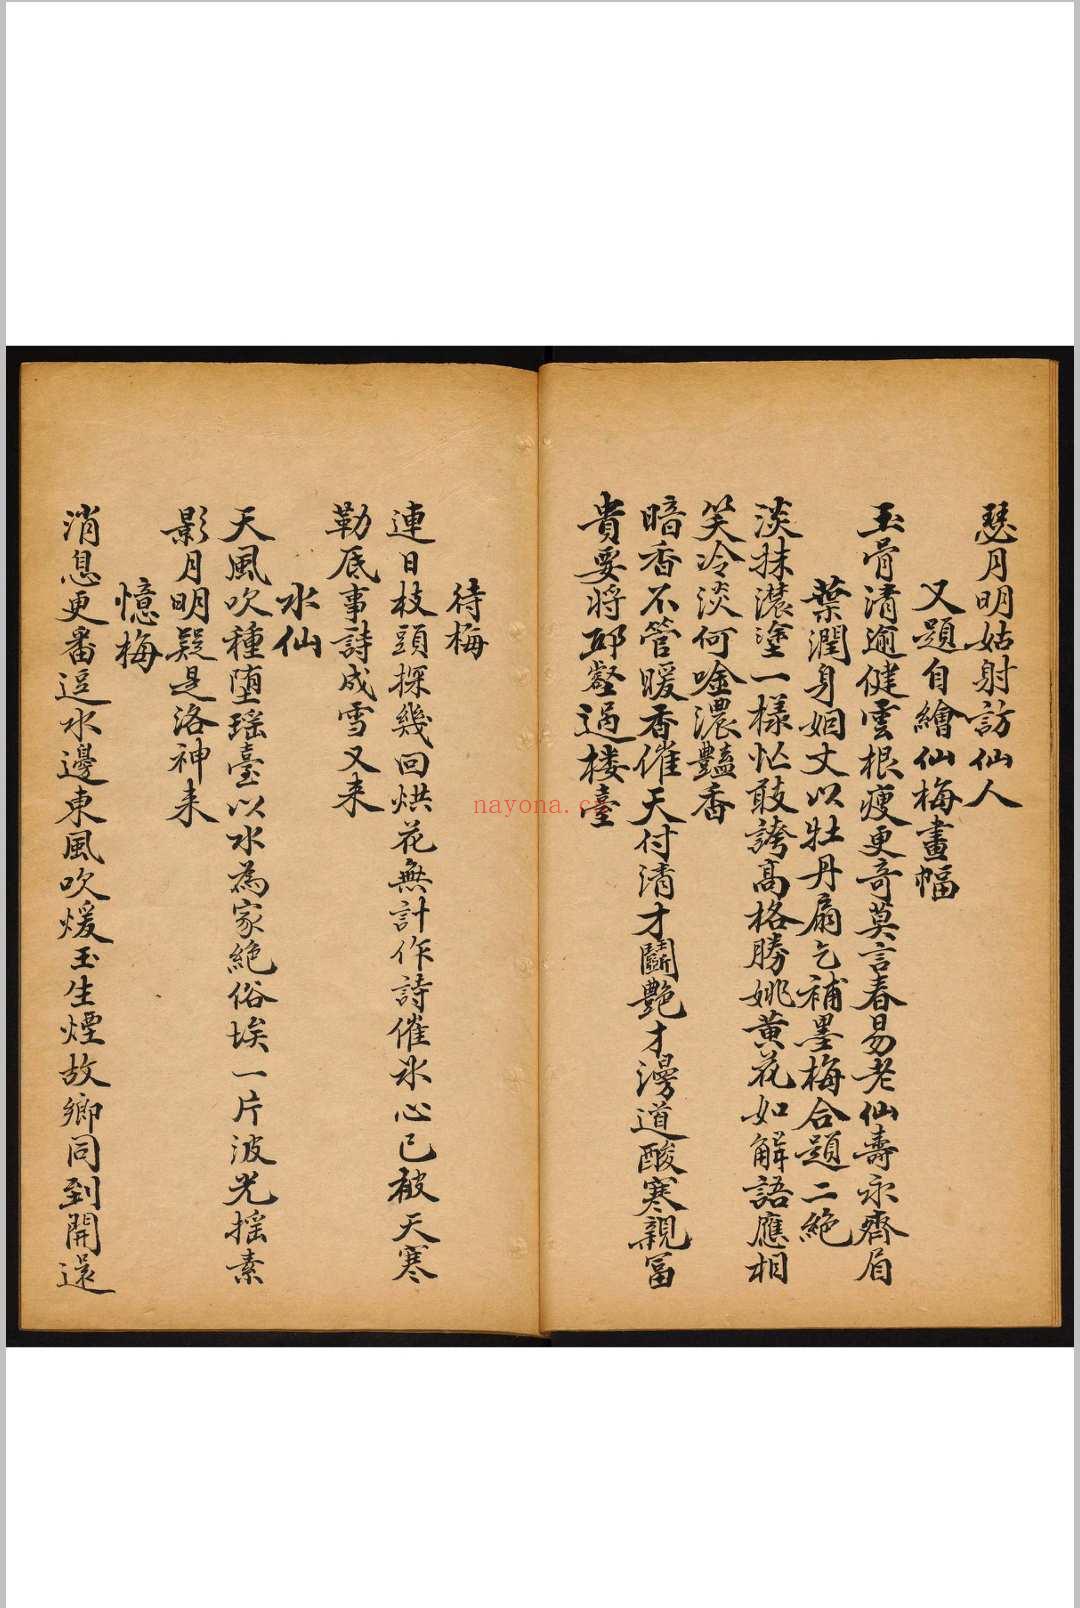 瑟月明姑射訪仙人
又題自繪仙梅畫幅
玉骨清逾健雲根瘦更奇莫言春易老仙壽永齊眉
葉潤身姻丈以牡丹扇乞補墨梅合題二絶
淡抹濃塗一樣忙敢誇高格勝姚黄花如解語應相
笑冷淡何唫濃豔香
暗香不管暖香催天付清才鬭艶才漫道酸寒親冨
貴要將邱壑過楼臺
待梅
連日枝頭探幾回烘花無計作詩催氷心已被天寒
勒底事詩成雪又来
水仙
天風吹種堕瑶臺以水為家絶俗埃一片波光揺素
影月明疑是洛神来
憶梅
消息更番逗水邊東風吹煖玉生煙故鄉同到開還
nayona.c